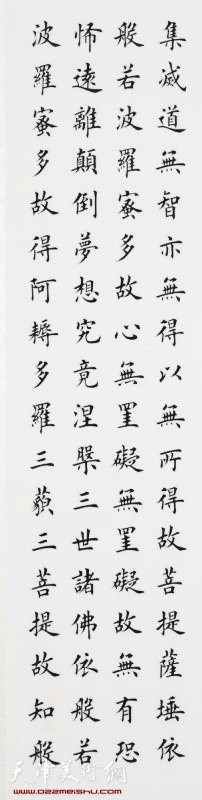 集滅道無智亦無得以無所得故菩提薩埵依
般若波羅蜜多故心無罣礙無罣礙故無有恐
怖遠離顛倒夢想究竟涅槃三世諸佛依般若
波羅蜜多故得阿耨多羅三藐三菩提故知般
天津美术网
www.022meishu.com